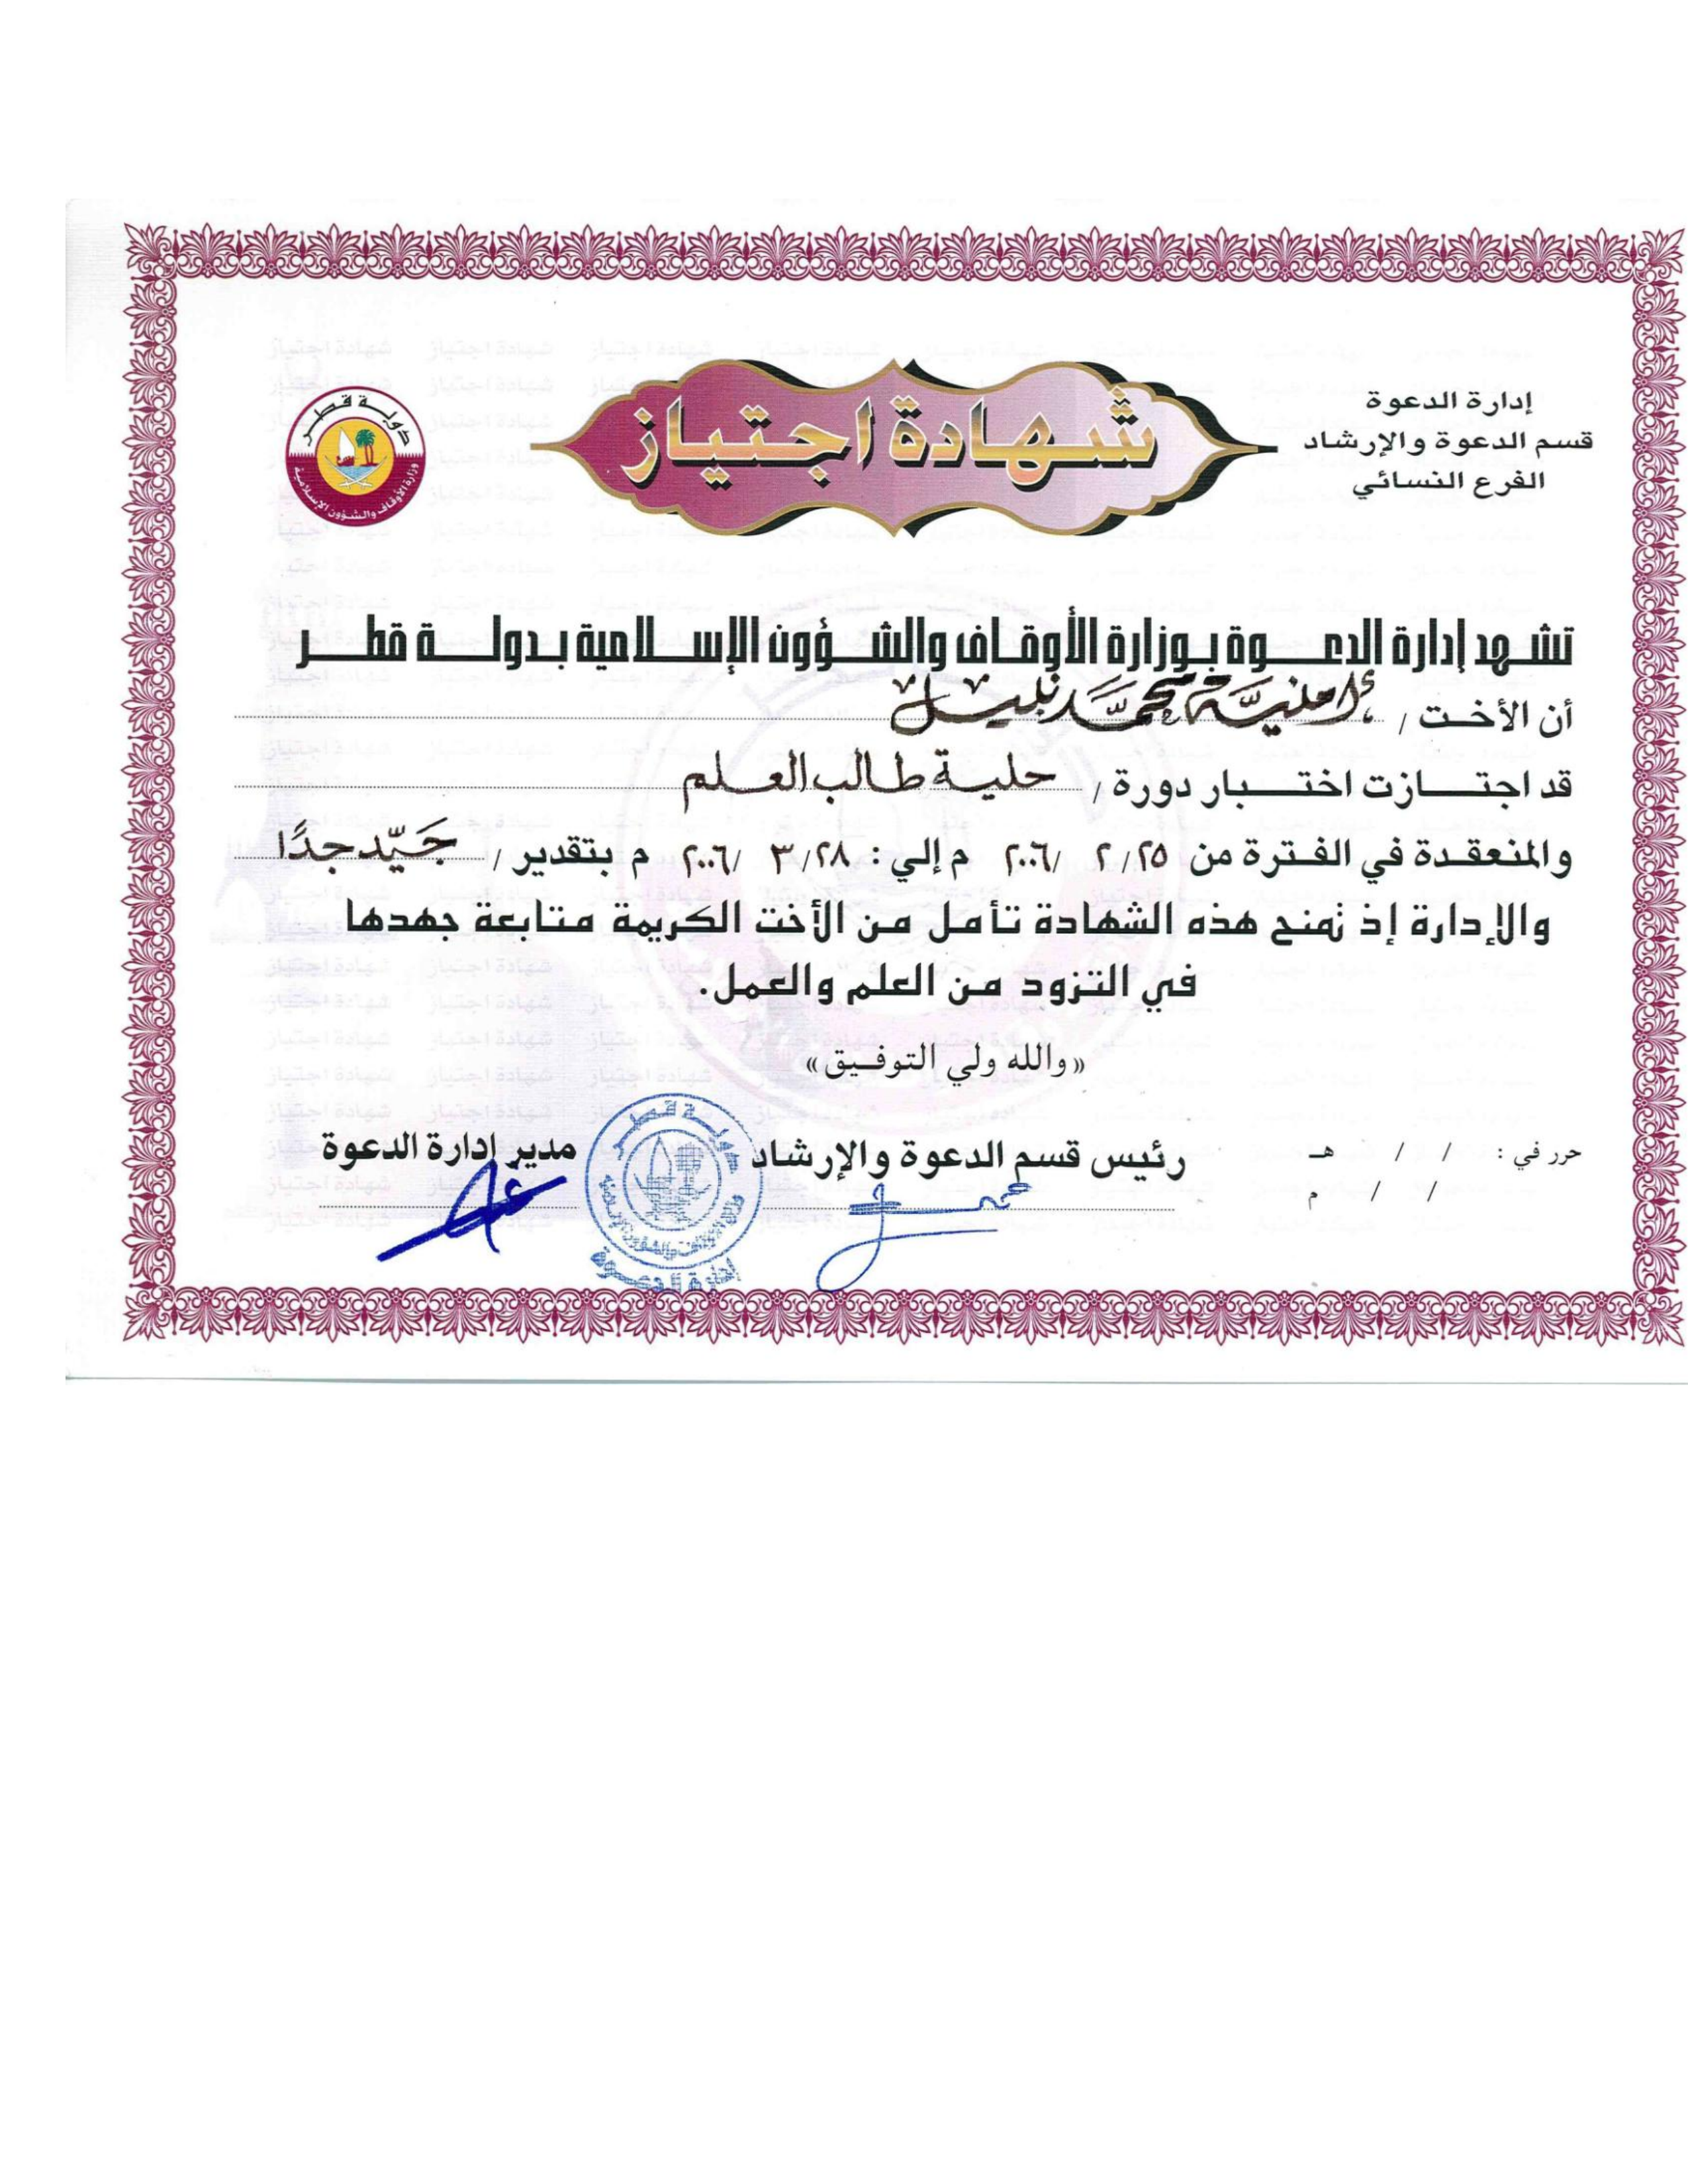 إدارة الدعوة
قسم الدعوة والإرشاد
الفرع النسائي
شهادة اجتياز
دولة قطر
وزارة الأوقاف والشؤون الإسلامية
تشهد إدارة الدعوة بوزارة الأوقاف والشؤون الإسلامية بدولة قطر
أن الأخت / أمنيَّة محمَّد نبيل
قد اجتازت اختبار دورة / حلية طالب العلم
والمنعقدة في الفترة من ٢٥/ ٢ /٢٠٠٦ م إلي : ٢٨/ ٣ /٢٠٠٦ م بتقدير / جَيّد جدًا
والإدارة إذ تمنح هذه الشهادة تأمل من الأخت الكريمة متابعة جهدها
في التزود من العلم والعمل.
«والله ولي التوفيق»
حرر في : / / هـ
/ / م
رئيس قسم الدعوة والإرشاد
مدير إدارة الدعوة
دولة قطر
وزارة الأوقاف والشؤون الإسلامية
إدارة الدعوة